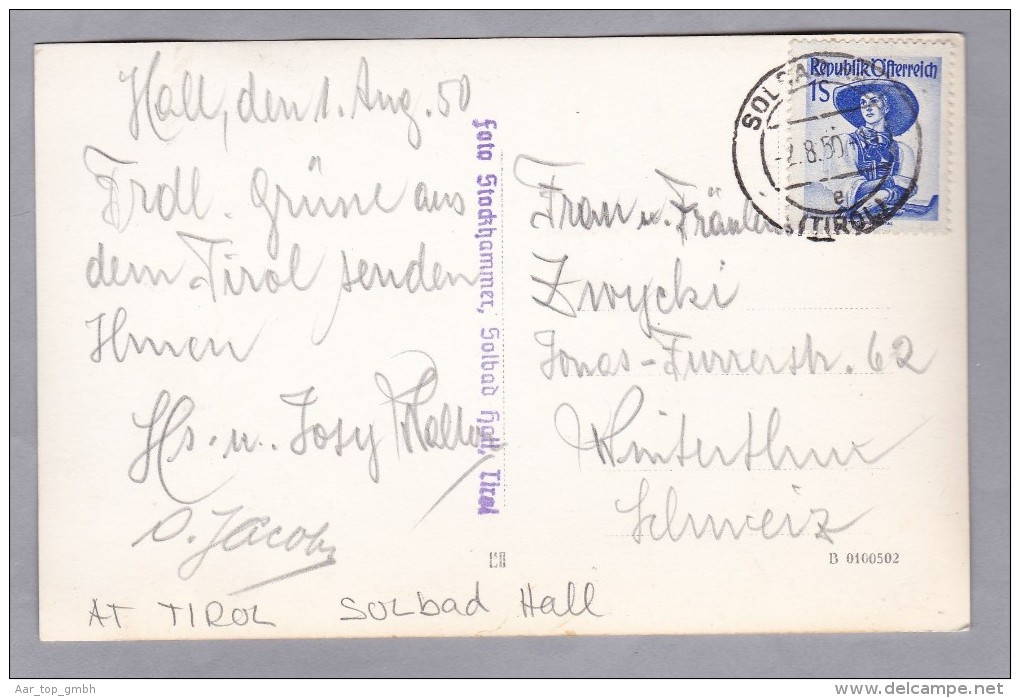 Hall, den 1. Aug. 50
Frdl. Grüsse aus
dem Tirol senden
Ihnen
Hs. u. Josy
O. Jacobs
Foto Stockhammer, Solbad Hall, Tirol
Republik Österreich
1S
SOLBAD
-2.8.50
e
(TIROL)
Frau u. Fräulein
Zwycki
Jonas-Furrerstr. 62
Winterthur
Schweiz
B 0100502
AT TIROL SOLBAD Hall
Aar_top_gmbh
delcampe.net